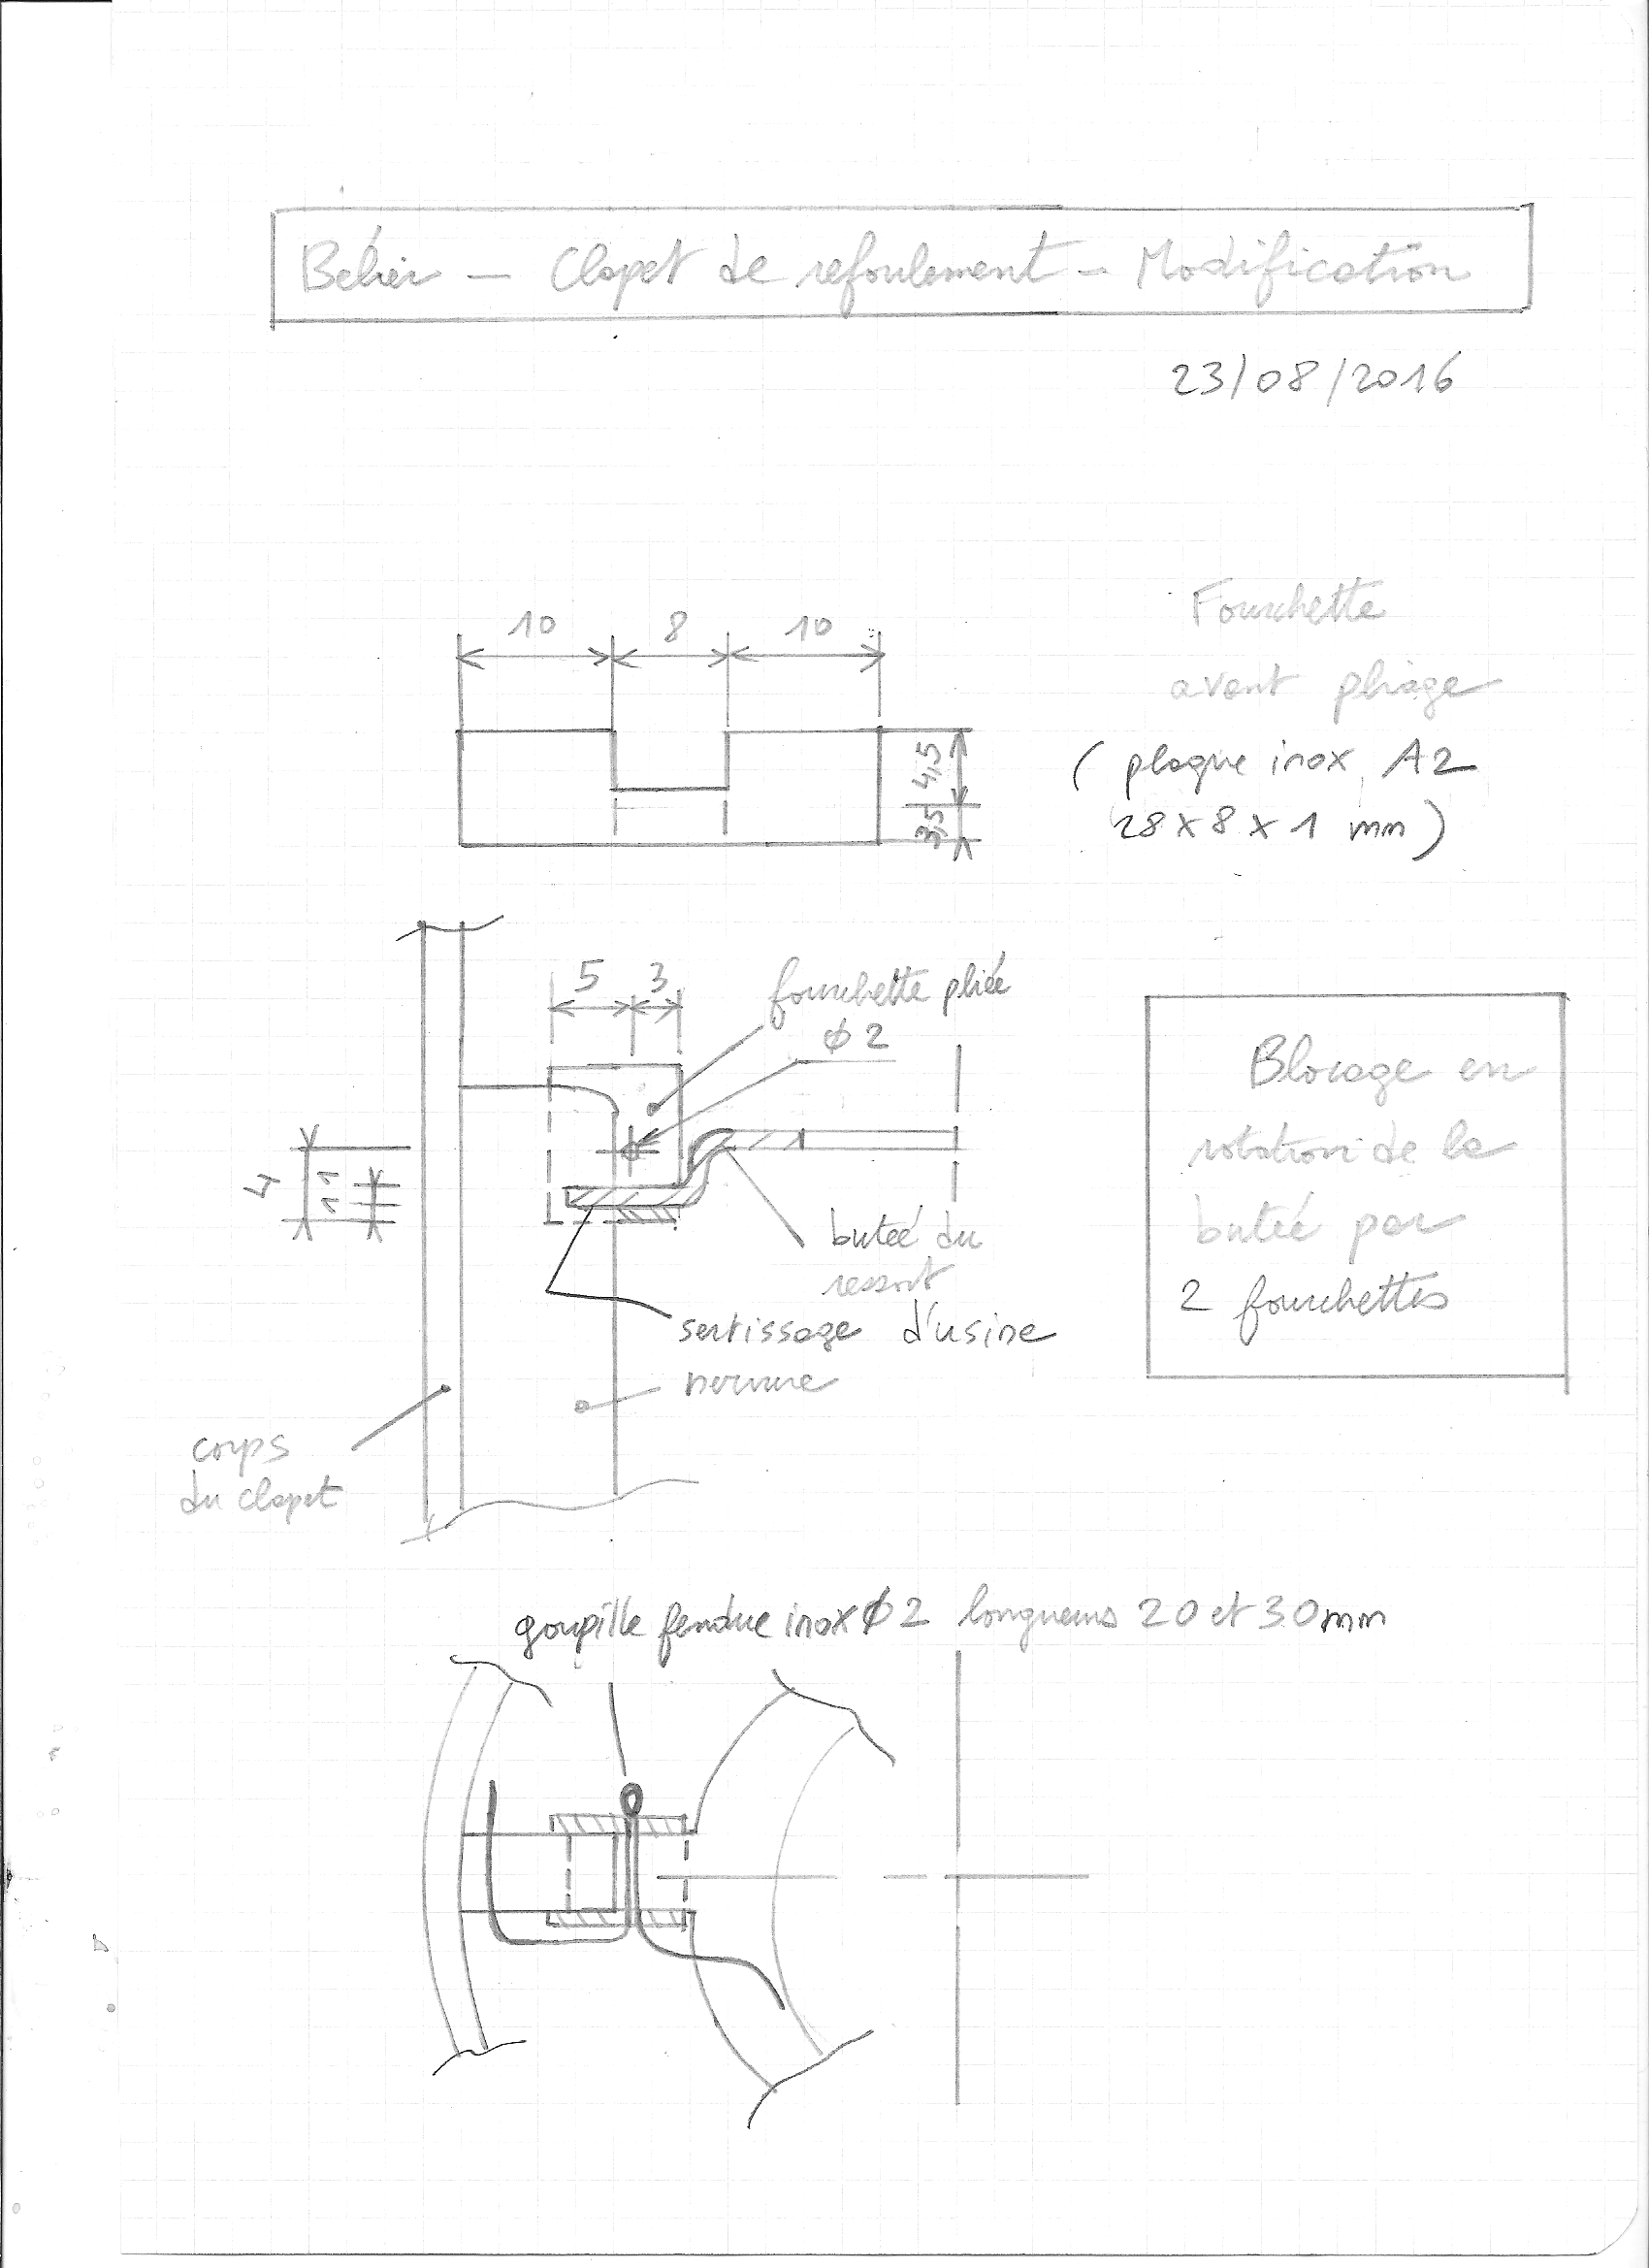 Bélier – Clapet de refoulement – Modification
23/08/2016
10 8 10
Fourchette
avant pliage
(plaque inox A2
28 x 8 x 1 mm)
4,5
3,5
5 3
fourchette pliée
ϕ 2
4
1 1
Blocage en
rotation de la
butée par
2 fourchettes
butée du
ressort
sertissage d'usine
nervure
corps
du clapet
goupille fendue inox ϕ 2 longueurs 20 et 30mm